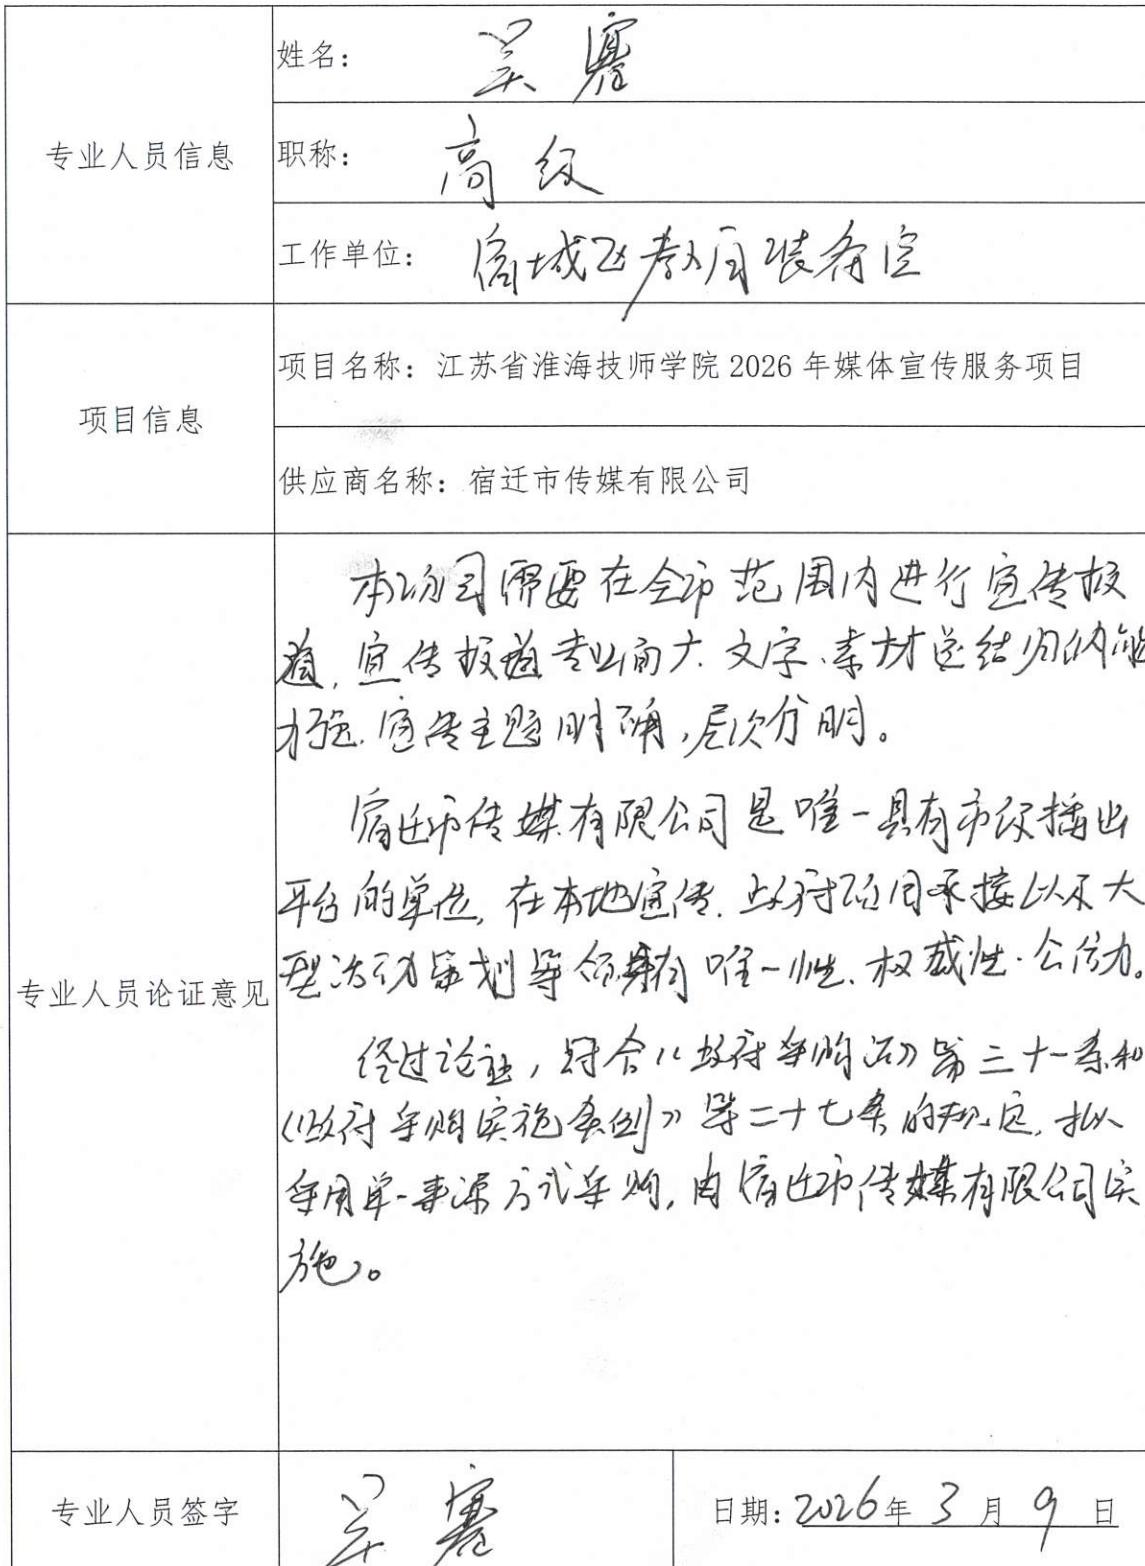 专业人员信息
姓名：吴骞
职称：高级
工作单位：宿城区教育装备室
项目信息
项目名称：江苏省淮海技师学院2026年媒体宣传服务项目
供应商名称：宿迁市传媒有限公司
专业人员论证意见
本项目需要在全市范围内进行宣传报
道，宣传报道专业面大、文字、素材总结归纳能
力强、宣传主题明确，层次分明。
宿迁市传媒有限公司是唯一具有市级播出
平台的单位，在本地宣传、政府项目承接以及大
型活动策划等领域有唯一性、权威性、公信力。
经过论证，符合《政府采购法》第三十一条和
《政府采购实施条例》第二十七条的规定，拟
采用单一来源方式采购，由宿迁市传媒有限公司实
施。
专业人员签字
日期：2026年3月9日